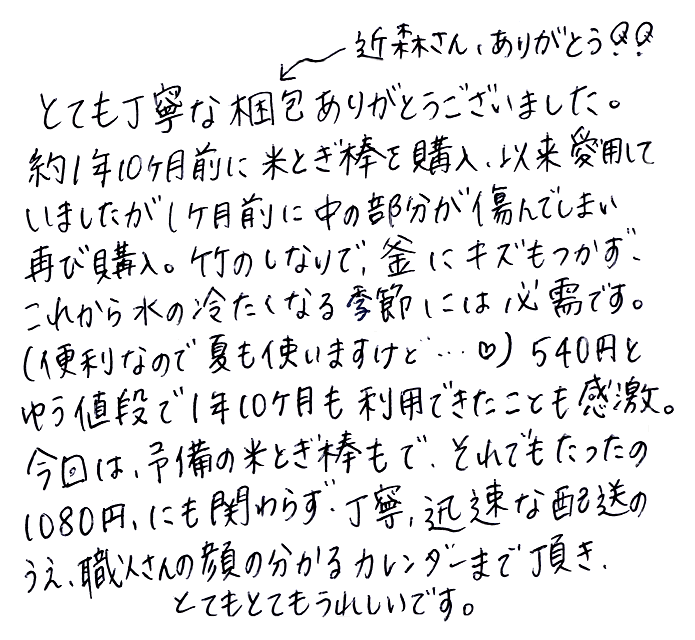 近森さん、ありがとう!!
とても丁寧な梱包ありがとうございました。
約1年10ヶ月前に米とぎ棒を購入、以来愛用して
いましたが1ヶ月前に中の部分が傷んでしまい
再び購入。竹のしなりで、釜にキズもつかず、
これから水の冷たくなる季節には必需です。
(便利なので夏も使いますけど…♡) 540円と
ゆう値段で1年10ヶ月も利用できたことも感激。
今回は、予備の米とぎ棒もで、それでもたったの
1080円、にも関わらず、丁寧、迅速な配送の
うえ、職人さんの顔の分かるカレンダーまで頂き、
とてもとてもうれしいです。